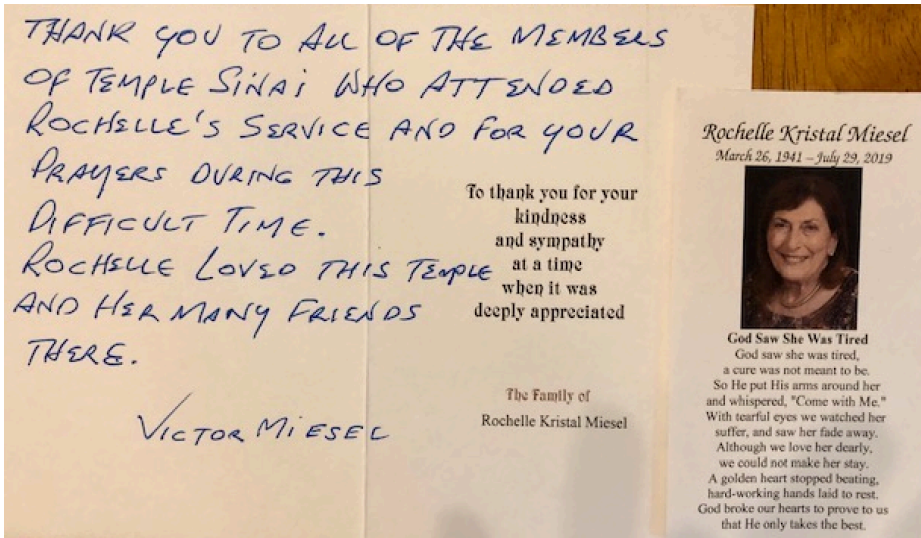 THANK YOU TO ALL OF THE MEMBERS
OF TEMPLE SINAi WHO ATTENDED
ROCHELLE'S SERVICE AND FOR YOUR
PRAYERS DURING THIS
DIFFICULT TIME.
ROCHELLE LOVED THIS TEMPLE
AND HER MANY FRIENDS
THERE.
VICTOR MIESEL
To thank you for your
kindness
and sympathy
at a time
when it was
deeply appreciated
The Family of
Rochelle Kristal Miesel
Rochelle Kristal Miesel
March 26, 1941 – July 29, 2019
God Saw She Was Tired
God saw she was tired,
a cure was not meant to be.
So He put His arms around her
and whispered, "Come with Me."
With tearful eyes we watched her
suffer, and saw her fade away.
Although we love her dearly,
we could not make her stay.
A golden heart stopped beating,
hard-working hands laid to rest.
God broke our hearts to prove to us
that He only takes the best.